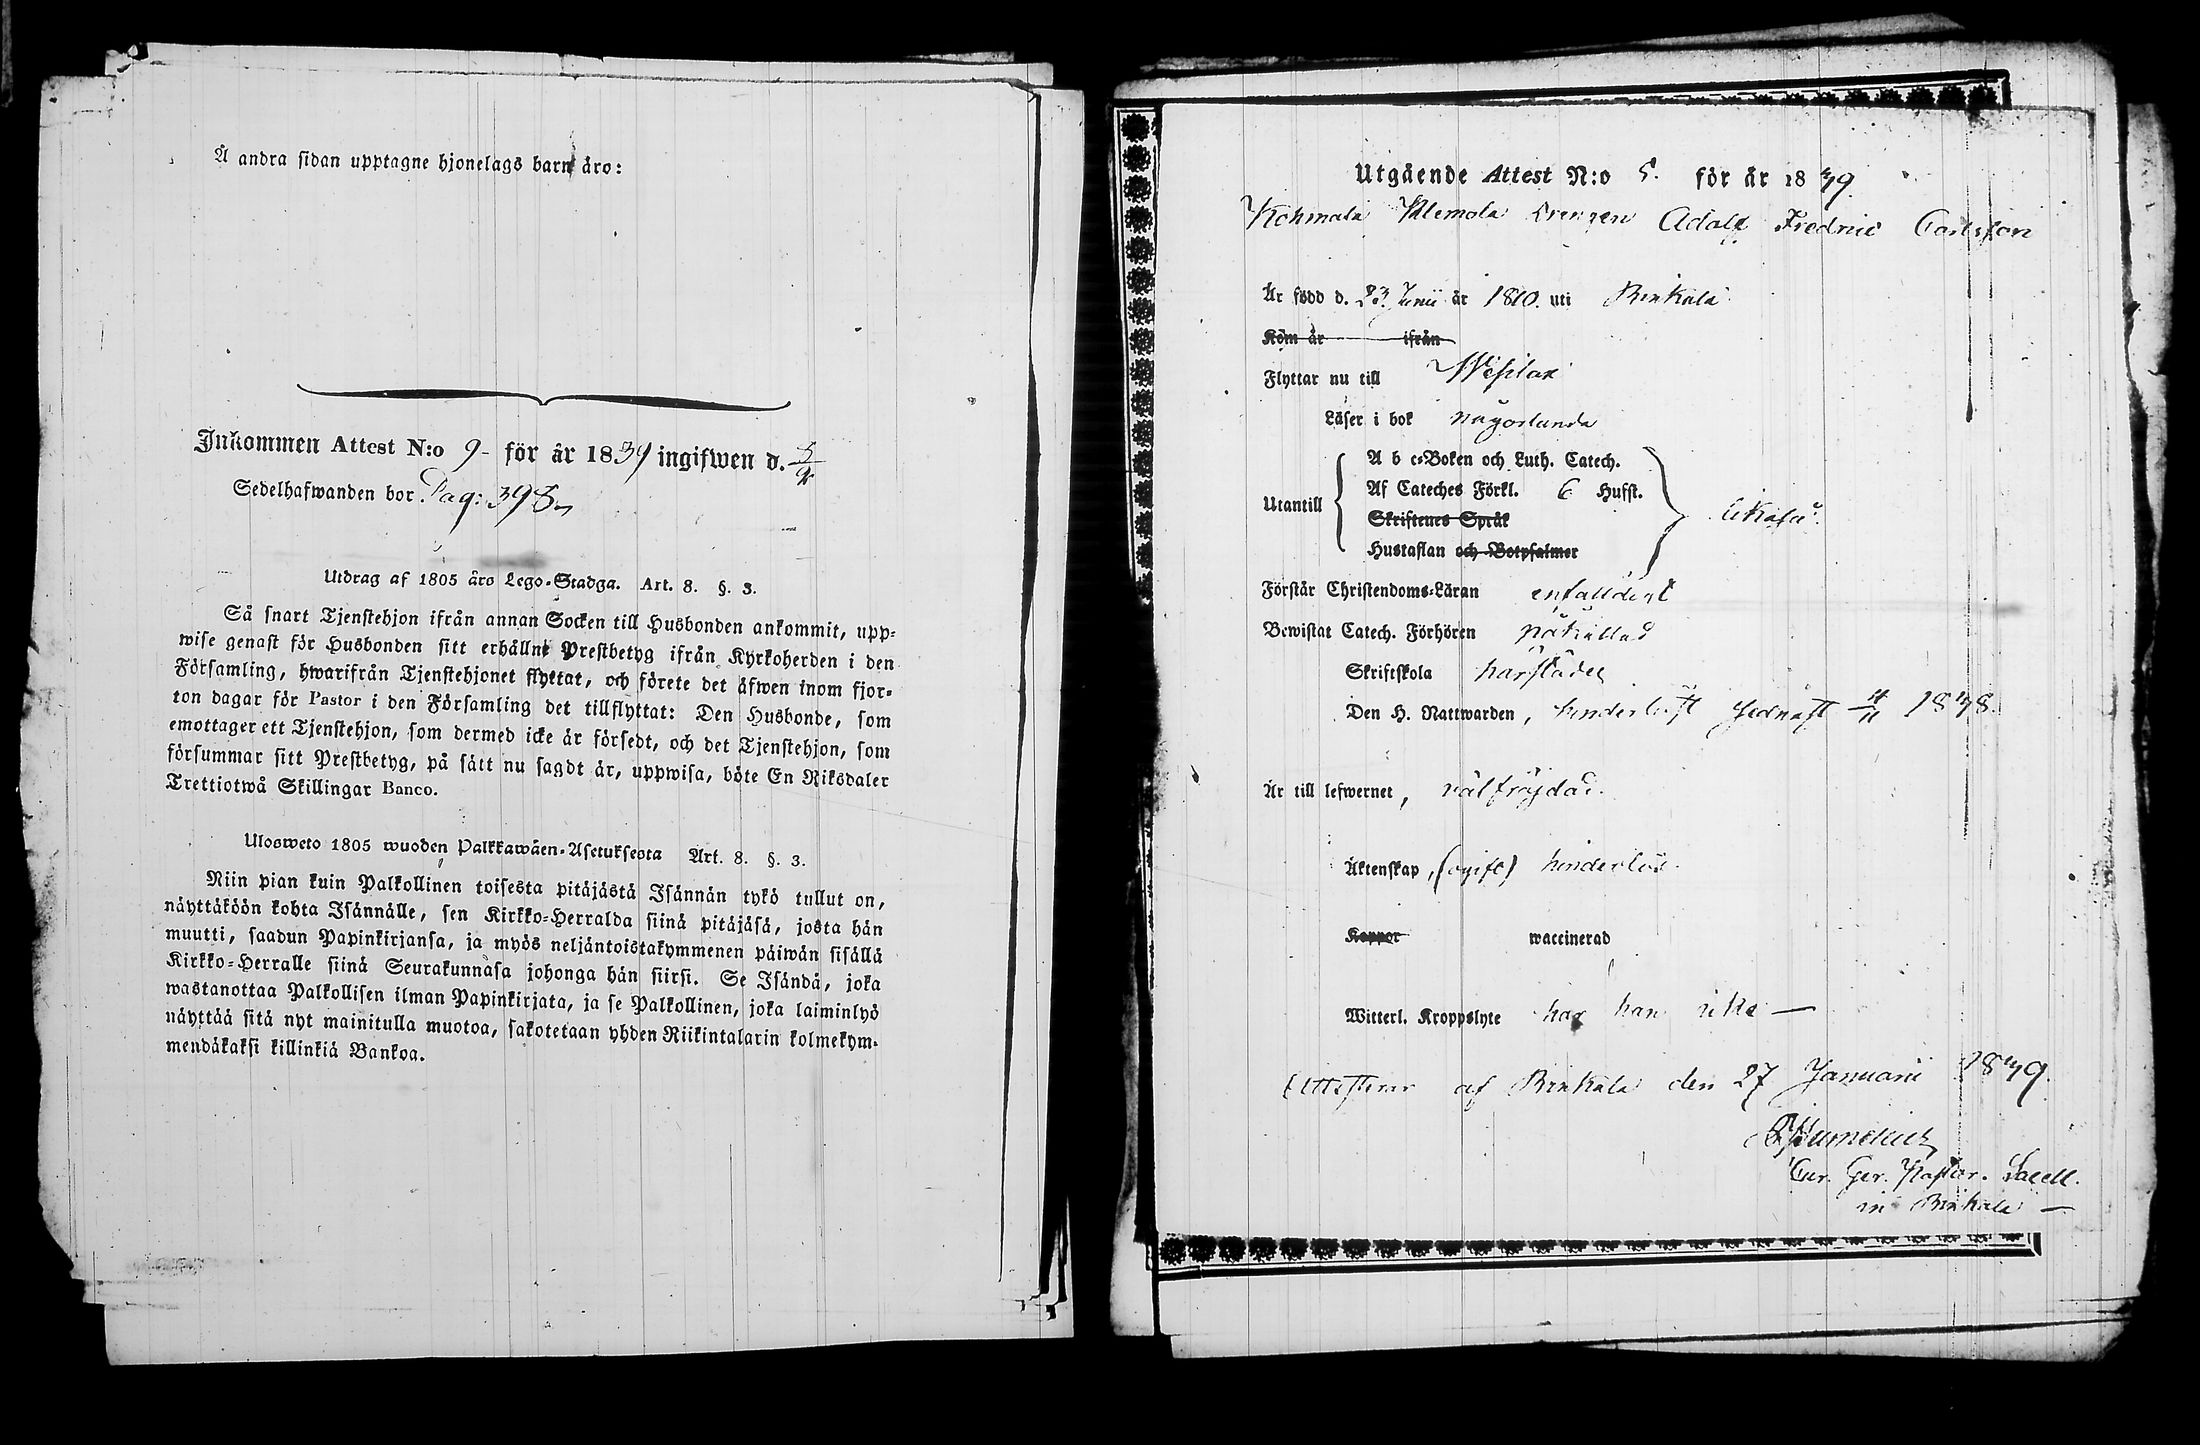 Å andra sidan upptagne hjonelags barn äro:
Inkommen Attest N:o 9 för år 1839 ingifwen d. 5/4
Sedelhafwanden bor Pag: 398
Utdrag af 1805 års Lego-Stadga. Art. 8. §. 3.
Så snart Tjenstehjon ifrån annan Socken till Husbonden ankommit, upp-
wise genast för Husbonden sitt erhållne Prestbetyg ifrån Kyrkoherden i den
Församling, hwarifrån Tjenstehjonet flyttat, och förete det äfwen inom fjor-
ton dagar för Pastor i den Församling det tillflyttat: Den Husbonde, som
emottager ett Tjenstehjon, som dermed icke är försedt, och det Tjenstehjon, som
försummar sitt Prestbetyg, på sätt nu sagdt är, uppwisa, böte En Riksdaler
Trettiotwå Skillingar Banco.
Ulosweto 1805 wuoden Palkkawäen-Asetuksesta Art. 8. §. 3.
Niin pian kuin Palkollinen toisesta pitäjästä Isännän tykö tullut on,
näyttäköön kohta Isännälle, sen Kirkko-Herralda siinä pitäjäsä, josta hän
muutti, saadun Papinkirjansa, ja myös neljäntoistakymmenen päiwän sisällä
Kirkko-Herralle siinä Seurakunnasa johonga hän siirsi. Se Isändä, joka
wastanottaa Palkollisen ilman Papinkirjata, ja se Palkollinen, joka laiminlyö
näyttää sitä nyt mainitulla muotoa, sakotetaan yhden Riikintalarin kolmekym-
mendäkaksi killinkiä Bankoa.
Utgående Attest N:o 5. för år 1839.
Kohmala Klemola Drengen Adolf Fredric Carlsson
Är född d. 23 Junii år 1810. uti Birkala
Kom år ifrån
Flyttar nu till Wesilax
Läser i bok någorlunda
Utantill
A b c-Boken och Luth. Catech.
Af Cateches Förkl. 6 Hufst.
Skriftenes Språk
Hustaflan och Botpsalmer
likaså.
Förstår Christendoms-Läran enfalldigt
Bewistat Catech. Förhören
Skriftskola härstädes
Den H. Nattwarden, hinderlöst sednast 4/11 1838.
Är till lefwernet, välfräjdad.
Äktenskap, (ogift) hinderlös.
Koppor waccinerad
Witterl. Kroppslyte har han icke —
Attesterar af Birkala den 27 Januarii 1839.
Pastor. Sacell.
in Birkala —